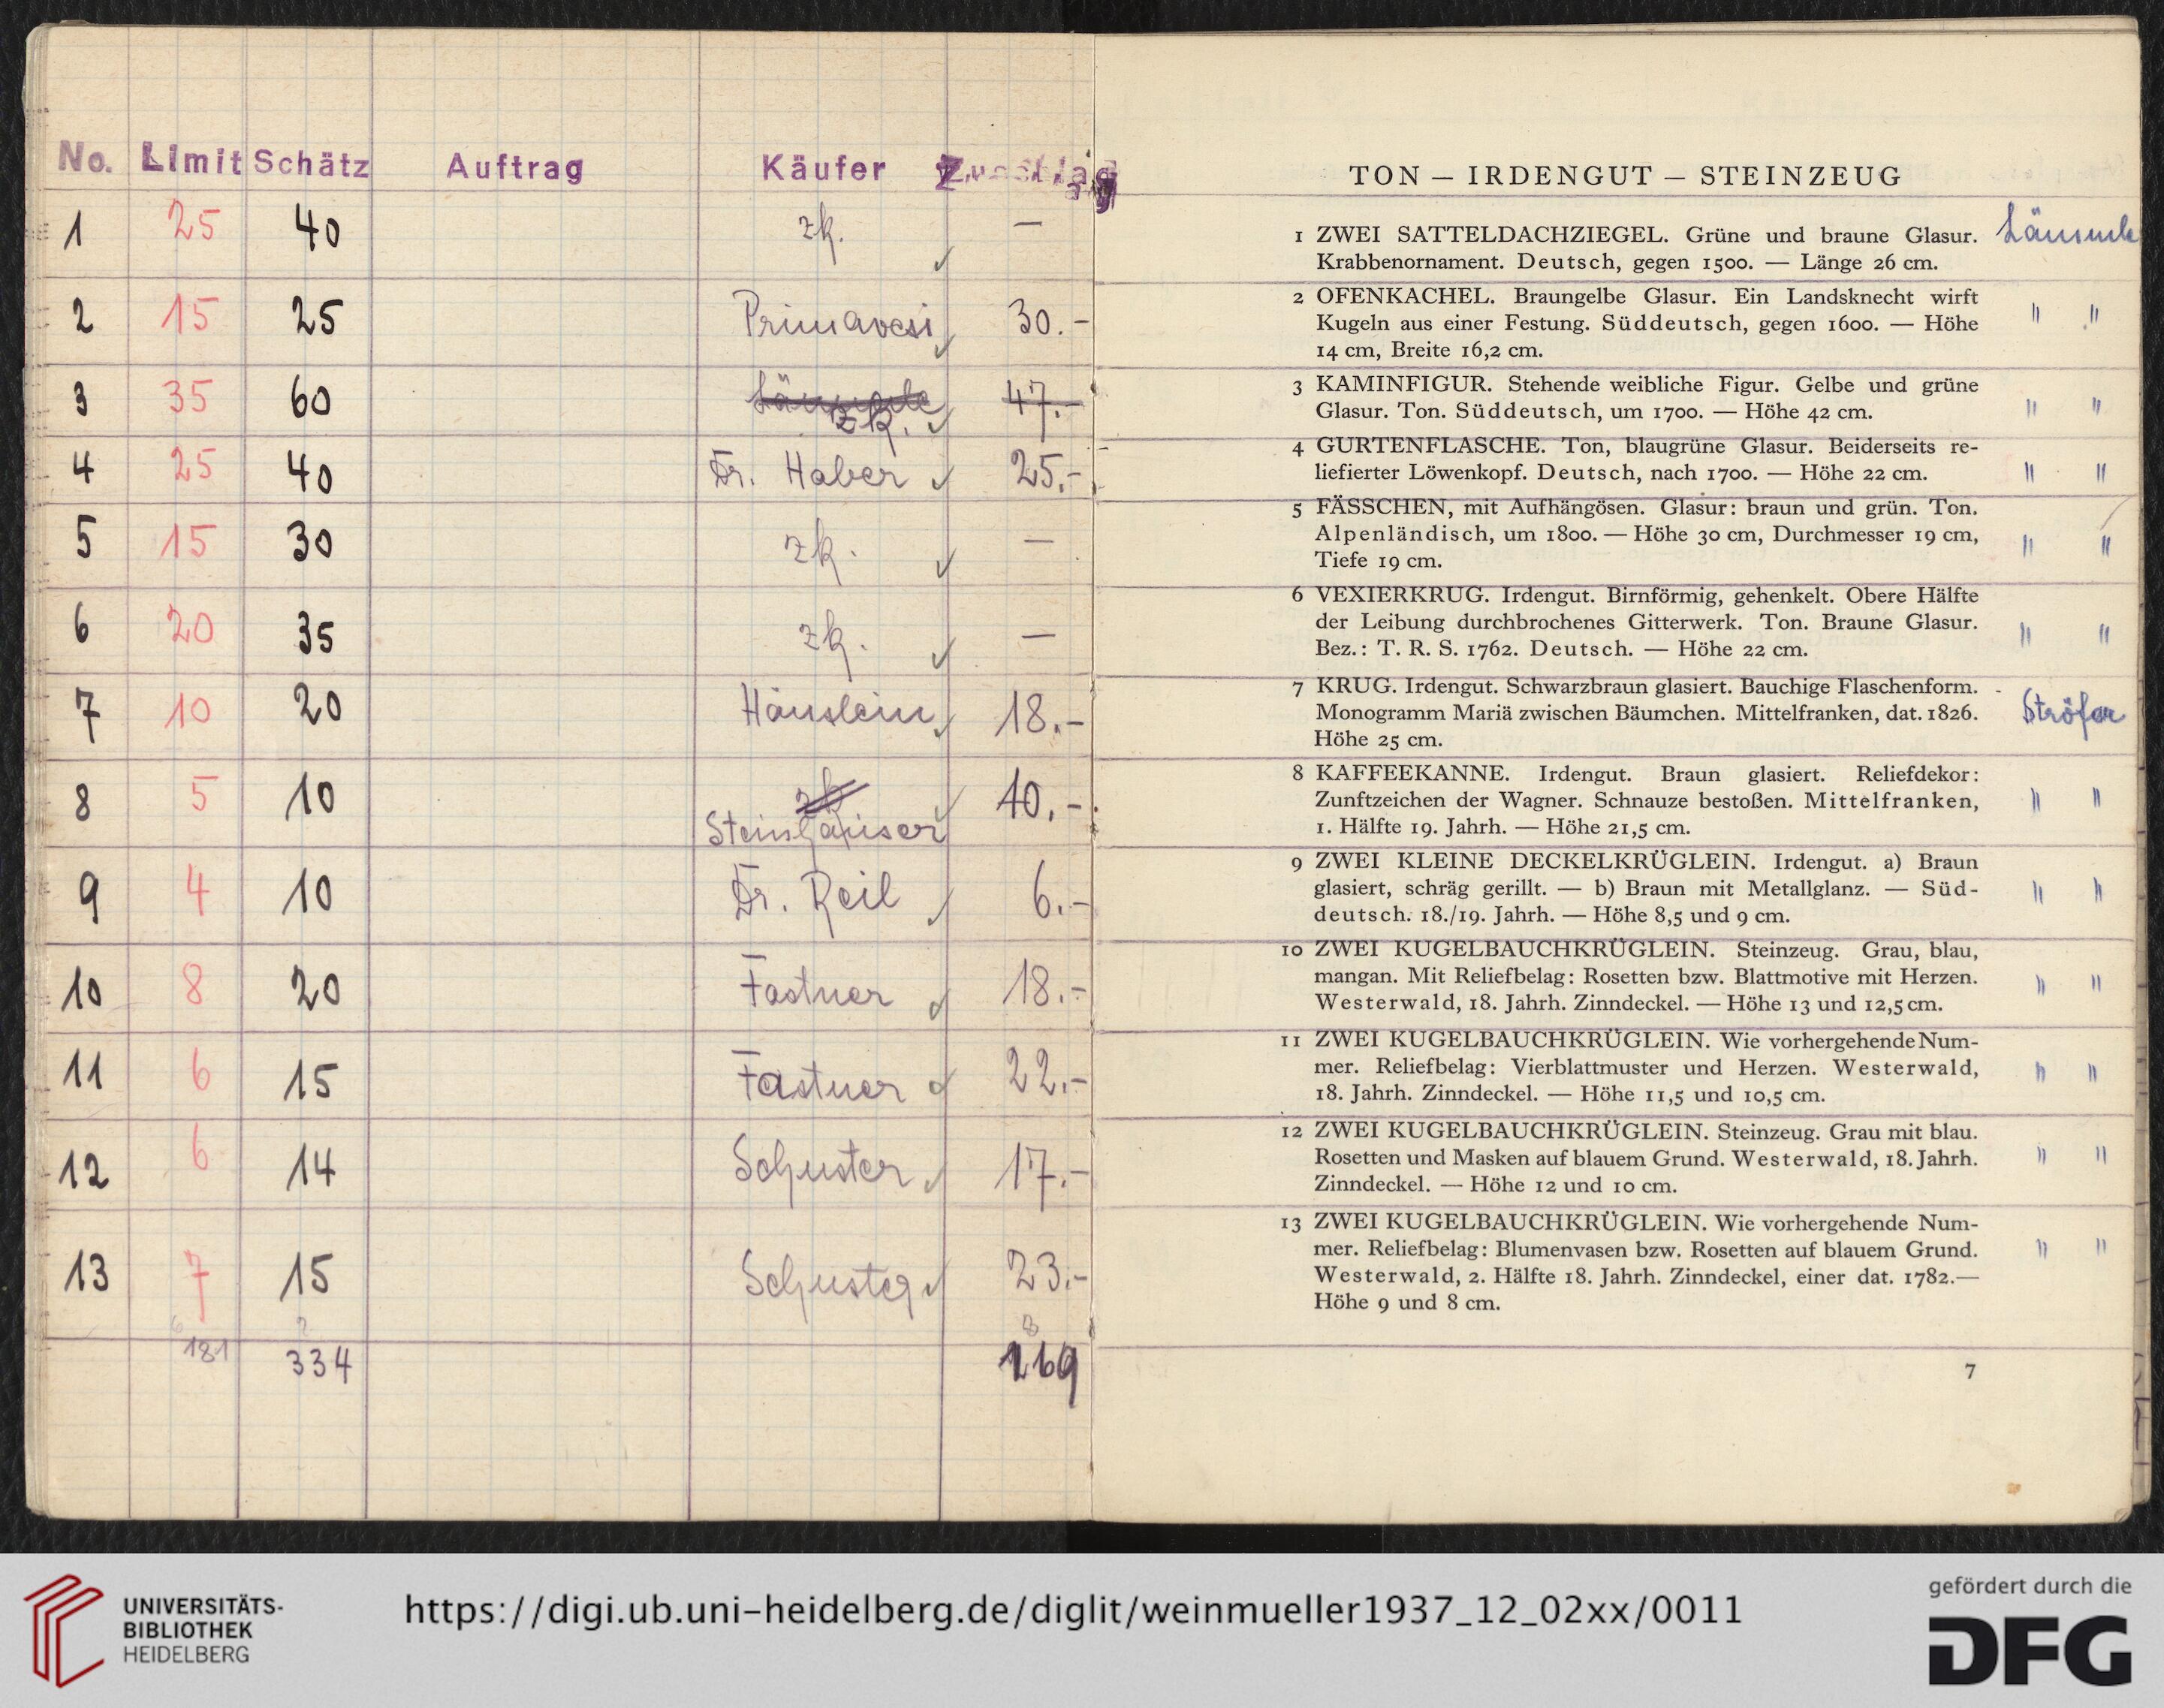 No. Limit Schätz Auftrag Käufer Zuschlag
1 25 40 zk. —
2 15 25 Primavesi 30.-
3 35 60 Lämmle zk. 47.-
4 25 40 Dr. Haber 25.-
5 15 30 zk. —
6 20 35 zk. —
7 10 20 Häuslein 18.-
8 5 10 zk 40.-
Steinhäuser
9 4 10 Dr. Reil 6.-
10 8 20 Fastner 18.-
11 6 15 Fastner 22.-
12 6 14 Schuster 17.-
13 7 15 Schuster 23.-
181 334 169
TON — IRDENGUT — STEINZEUG
1 ZWEI SATTELDACHZIEGEL. Grüne und braune Glasur.
Krabbenornament. Deutsch, gegen 1500. — Länge 26 cm.
2 OFENKACHEL. Braungelbe Glasur. Ein Landsknecht wirft
Kugeln aus einer Festung. Süddeutsch, gegen 1600. — Höhe " "
14 cm, Breite 16,2 cm.
3 KAMINFIGUR. Stehende weibliche Figur. Gelbe und grüne
Glasur. Ton. Süddeutsch, um 1700. — Höhe 42 cm. " "
4 GURTENFLASCHE. Ton, blaugrüne Glasur. Beiderseits re-
liefierter Löwenkopf. Deutsch, nach 1700. — Höhe 22 cm. " "
5 FÄSSCHEN, mit Aufhängösen. Glasur: braun und grün. Ton.
Alpenländisch, um 1800. — Höhe 30 cm, Durchmesser 19 cm, " "
Tiefe 19 cm.
6 VEXIERKRUG. Irdengut. Birnförmig, gehenkelt. Obere Hälfte
der Leibung durchbrochenes Gitterwerk. Ton. Braune Glasur. " "
Bez.: T. R. S. 1762. Deutsch. — Höhe 22 cm.
7 KRUG. Irdengut. Schwarzbraun glasiert. Bauchige Flaschenform.
Monogramm Mariä zwischen Bäumchen. Mittelfranken, dat. 1826. Ströfer
Höhe 25 cm.
8 KAFFEEKANNE. Irdengut. Braun glasiert. Reliefdekor:
Zunftzeichen der Wagner. Schnauze bestoßen. Mittelfranken, " "
1. Hälfte 19. Jahrh. — Höhe 21,5 cm.
9 ZWEI KLEINE DECKELKRÜGLEIN. Irdengut. a) Braun
glasiert, schräg gerillt. — b) Braun mit Metallglanz. — Süd- " "
deutsch. 18./19. Jahrh. — Höhe 8,5 und 9 cm.
10 ZWEI KUGELBAUCHKRÜGLEIN. Steinzeug. Grau, blau,
mangan. Mit Reliefbelag: Rosetten bzw. Blattmotive mit Herzen. " "
Westerwald, 18. Jahrh. Zinndeckel. — Höhe 13 und 12,5 cm.
11 ZWEI KUGELBAUCHKRÜGLEIN. Wie vorhergehende Num-
mer. Reliefbelag: Vierblattmuster und Herzen. Westerwald, " "
18. Jahrh. Zinndeckel. — Höhe 11,5 und 10,5 cm.
12 ZWEI KUGELBAUCHKRÜGLEIN. Steinzeug. Grau mit blau.
Rosetten und Masken auf blauem Grund. Westerwald, 18. Jahrh. " "
Zinndeckel. — Höhe 12 und 10 cm.
13 ZWEI KUGELBAUCHKRÜGLEIN. Wie vorhergehende Num-
mer. Reliefbelag: Blumenvasen bzw. Rosetten auf blauem Grund. " "
Westerwald, 2. Hälfte 18. Jahrh. Zinndeckel, einer dat. 1782.—
Höhe 9 und 8 cm.
7
UNIVERSITÄTS-
BIBLIOTHEK
HEIDELBERG
https://digi.ub.uni-heidelberg.de/diglit/weinmueller1937_12_02xx/0011
gefördert durch die
DFG